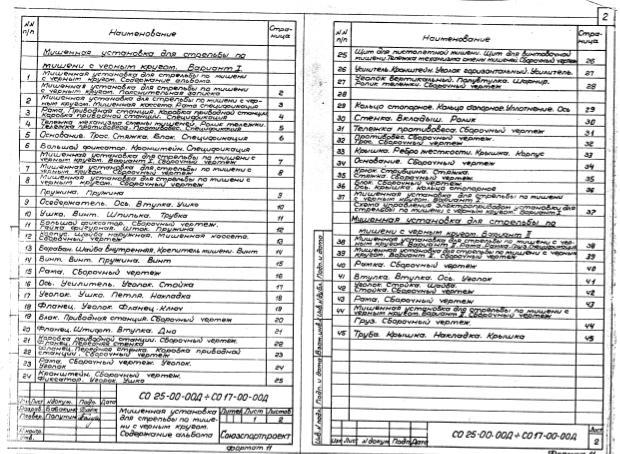 NN п/п Наименование Страница
Мишенная установка для стрельбы по
мишени с черным кругом. Вариант I
1 Мишенная установка для стрельбы по мишени
с черным кругом. Содержание альбома
Мишенная установка для стрельбы по мишени
с черным кругом. Пояснительная записка 2
2 Мишенная установка для стрельбы по мишени с чер-
ным кругом. Мишенная кассета. Рама. Спецификация 3
3 Рама. Приводная станция. Коробка приводной станции.
Коробка приводной станции. Спецификация 4
4 Тележка механизма смены мишеней. Ролик тележки.
Тележка противовеса. Противовес. Спецификация 5
5 Основание. Трос. Стяжка. Блок. Спецификация 6
6 Большой фиксатор. Кронштейн. Спецификация
7 Мишенная установка для стрельбы по мишени с
черным кругом. Вариант I. Сборочный чертеж 7
8 Мишенная установка для стрельбы по мишени
с черным кругом. Сборочный чертеж 8
Пружина. Пружина 9
9 Оседержатель. Ось. Втулка. Ушко 10
10 Ушко. Винт. Шпилька. Трубка 11
11 Большой фиксатор. Сборочный чертеж.
Гайка фигурная. Шток. Пружина 12
12 Корпус. Шайба наружная. Мишенная кассета.
Сборочный чертеж 13
13 Барабан. Шайба внутренняя. Крепитель мишени. Винт 14
14 Винт. Винт. Пружина. Винт 15
15 Рама. Сборочный чертеж 16
16 Ось. Усилитель. Уголок. Стойка 17
17 Уголок. Ушко. Петля. Накладка 18
18 Фланец. Уголок. Фланец. Ключ 19
19 Блок. Приводная станция. Сборочный чертеж 20
20 Фланец. Штифт. Втулка. Дно 21
21 Коробка приводной станции. Сборочный чертеж.
22
22 Коробка приводной
станции. Сборочный чертеж 23
23 Рама. Сборочный чертеж. Уголок.
Уголок 24
24 Кронштейн. Сборочный чертеж.
Фиксатор. Уголок. Ушко 25
СО 25-00-00Д÷СО17-00-00Д
Изм. Лист N докум. Подп. Дата
Мишенная установка
для стрельбы по мише-
ни с черным кругом.
Содержание альбома
Литер Лист Листов
1 2
Союзспортпроект
Формат 11
2
NN п/п Наименование Страница
25 Щит для пистолетной мишени. Щит для винтовочной
мишени. Тележка механизма смены мишеней. Сборочный чертеж 26
26 Усилитель. Кронштейн. Уголок горизонтальный. Усилитель. 27
27 Уголок вертикальный. Полувтулка. Шарнир.
Ролик тележки. Сборочный чертеж 28
28
29 Кольцо стопорное. Кольцо опорное. Уплотнение. Ось 29
30 Стенка. Вкладыш. Ролик 30
31 Тележка противовеса. Сборочный чертеж 31
32 Противовес. Сборочный чертеж
Трос. Сборочный чертеж 32
33 Крышка. Ребро жесткости. Крышка. Корпус 33
34 Основание. Сборочный чертеж 34
35 Конек. Струбцина. Стяжка.
Стяжка. Сборочный чертеж 35
36 Блок. Сборочный чертеж
Ось. Крышка. Кольцо стопорное 36
37 Мишенная установка для стрельбы по мишени
с черным кругом. Вариант I.
37
Мишенная установка для стрельбы по
мишени с черным кругом. Вариант II
38 38
39 Мишенная установка для стрельбы по мишени с черным
кругом. Вариант 2. Сборочный чертеж 39
40 Рамка. Сборочный чертеж 40
41 Втулка. Втулка. Ось. Уголок 41
42 Уголок. Стойка. Шайба.
Стойка. Сборочный чертеж 42
43 Рама. Сборочный чертеж 43
44 Мишенная установка для стрельбы по мишени с
черным кругом. Вариант 2. Сборочный чертеж
Груз. Сборочный чертеж 44
45 Труба. Крышка. Накладка. Крышка 45
СО 25-00-00Д÷СО17-00-00Д
Лист
2
Изм. Лист N докум. Подп. Дата
Формат 11